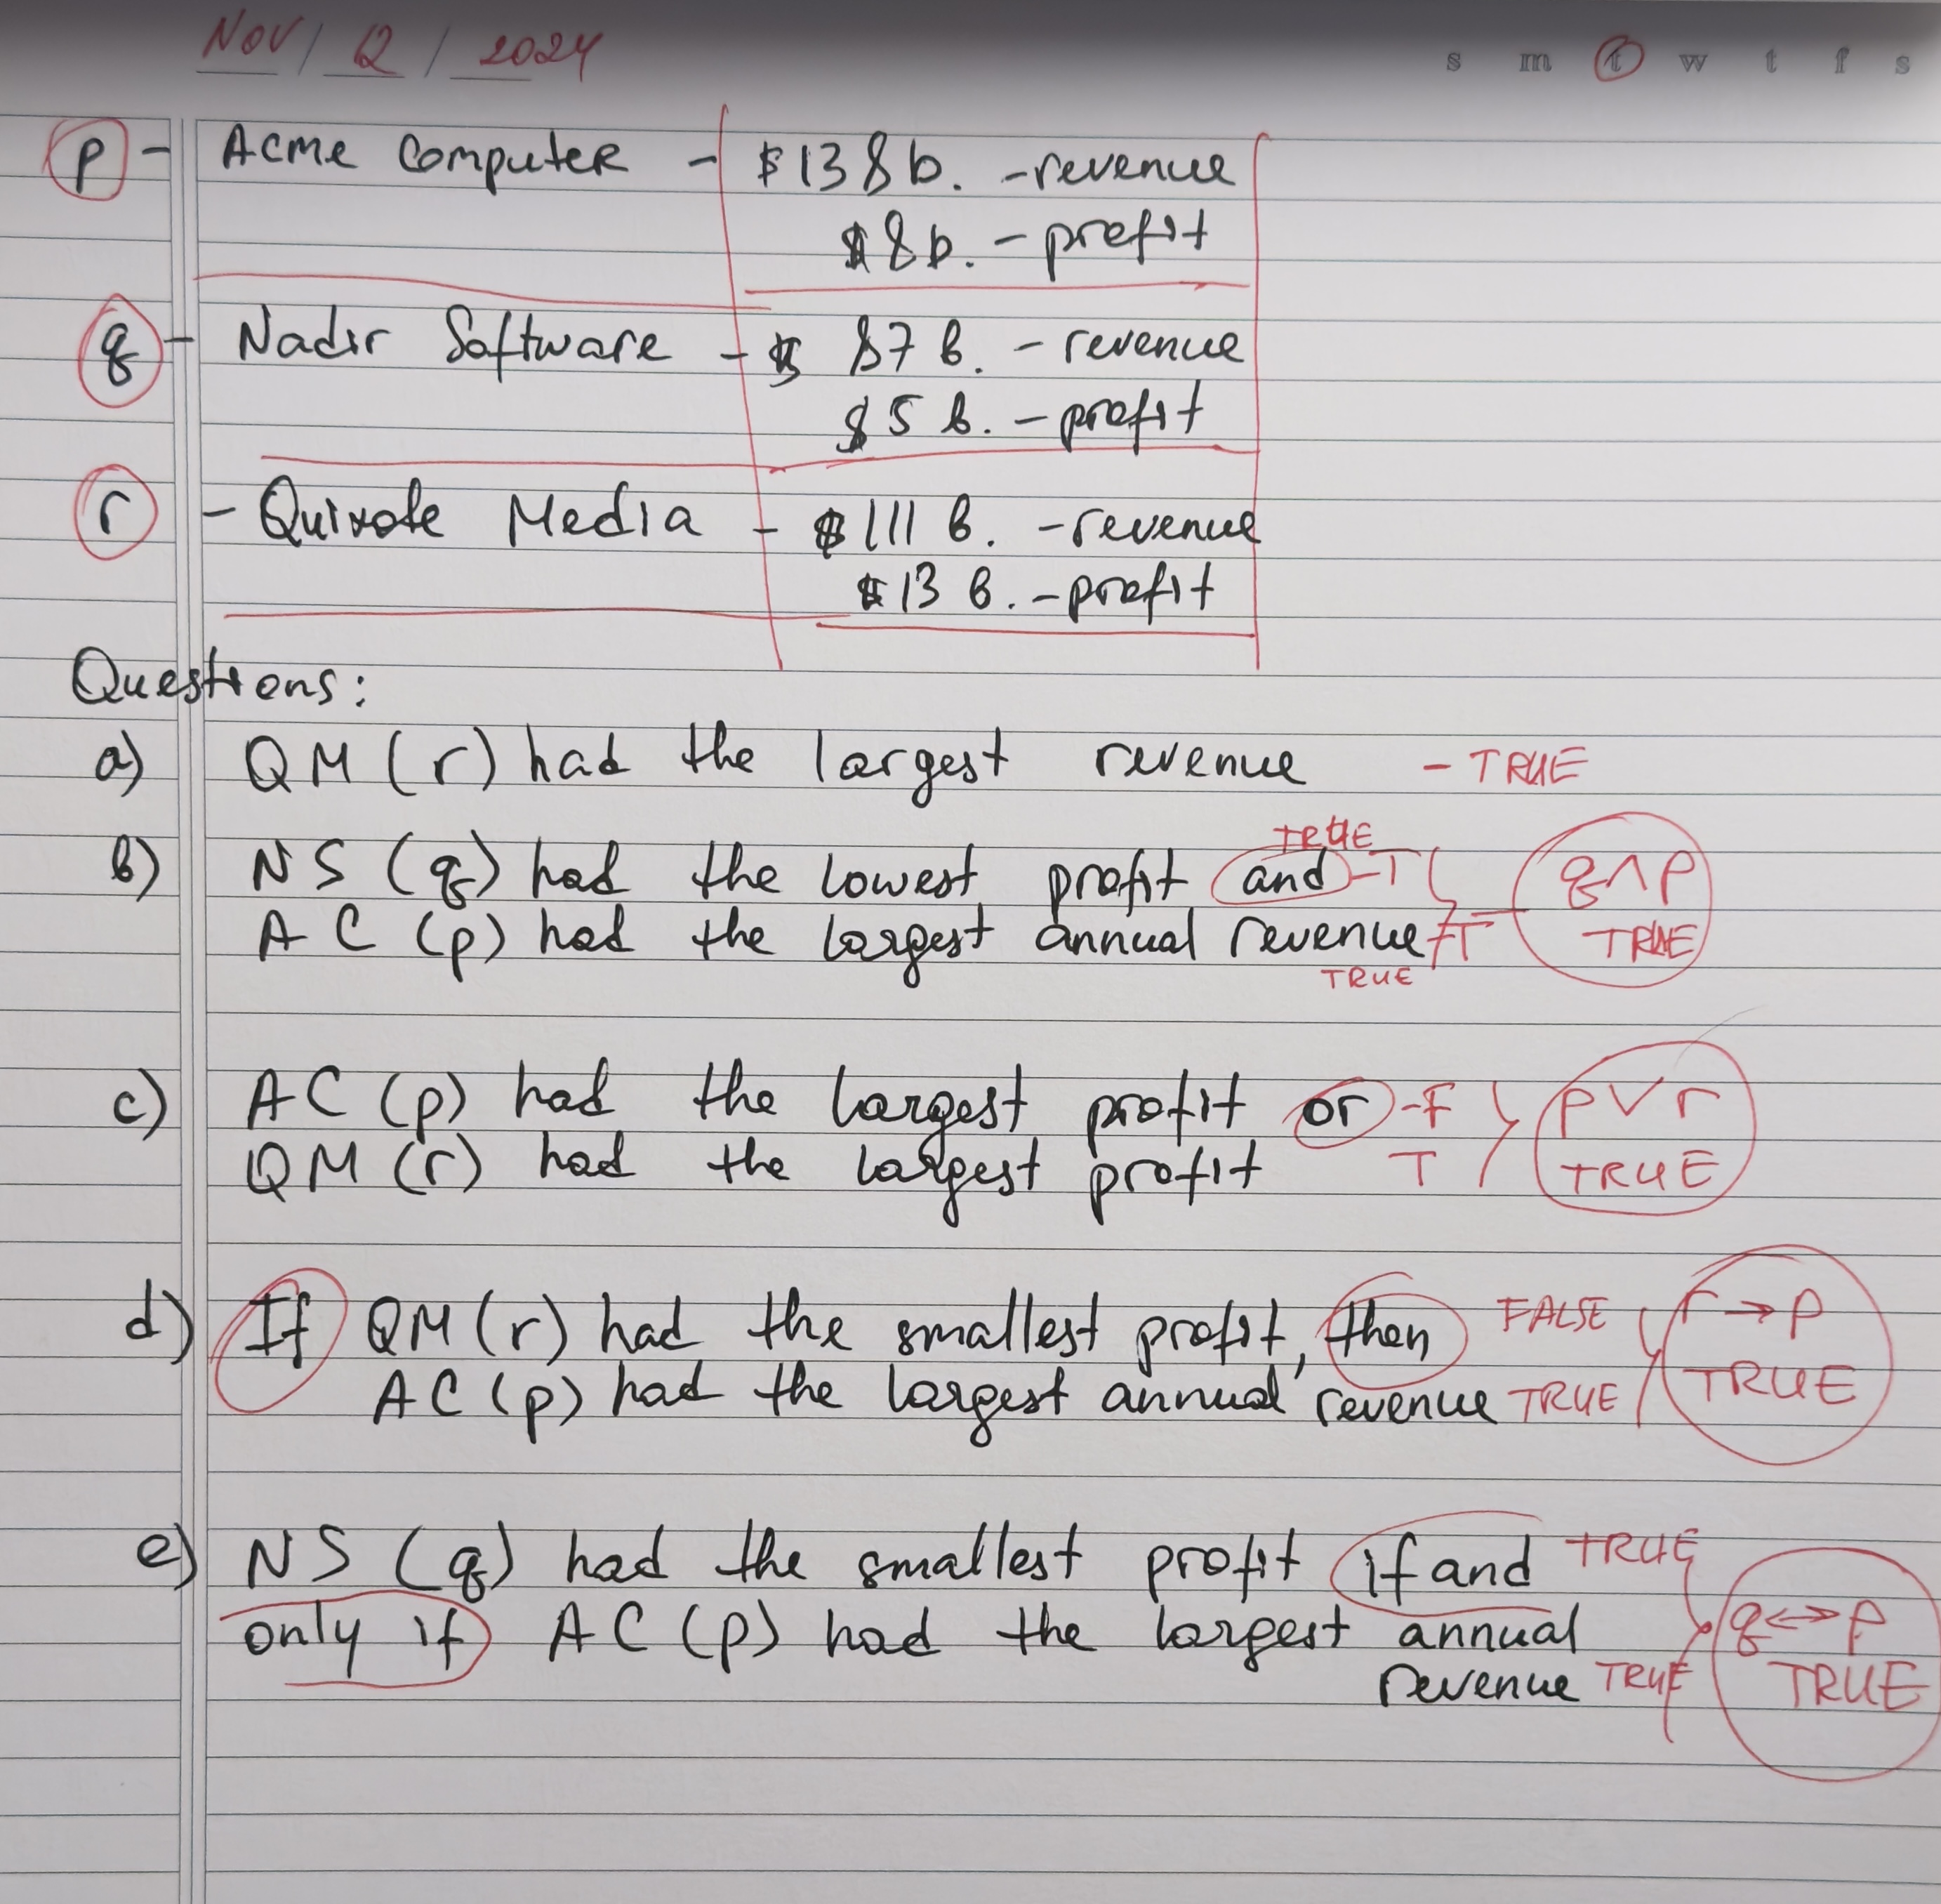 NOV / 12 / 2024
s m t w t f s
p - Acme Computer - $138b. - revenue
$8b. - profit
q - Nadir Software - $ 87 b. - revenue
$5 b. - profit
r - Quixote Media - $111 b. - revenue
$13 b. - profit
Questions:
a) QM (r) had the largest revenue - TRUE
TRUE
b) NS (q) had the lowest profit and - T q∧p
AC (p) had the largest annual revenue - T TRUE
TRUE
c) AC (p) had the largest profit or - F p∨r
QM (r) had the largest profit T TRUE
d) If QM (r) had the smallest profit, then FALSE r → p
AC (p) had the largest annual revenue TRUE TRUE
e) NS (q) had the smallest profit if and TRUE
only if AC (p) had the largest annual q ↔ p
revenue TRUE TRUE